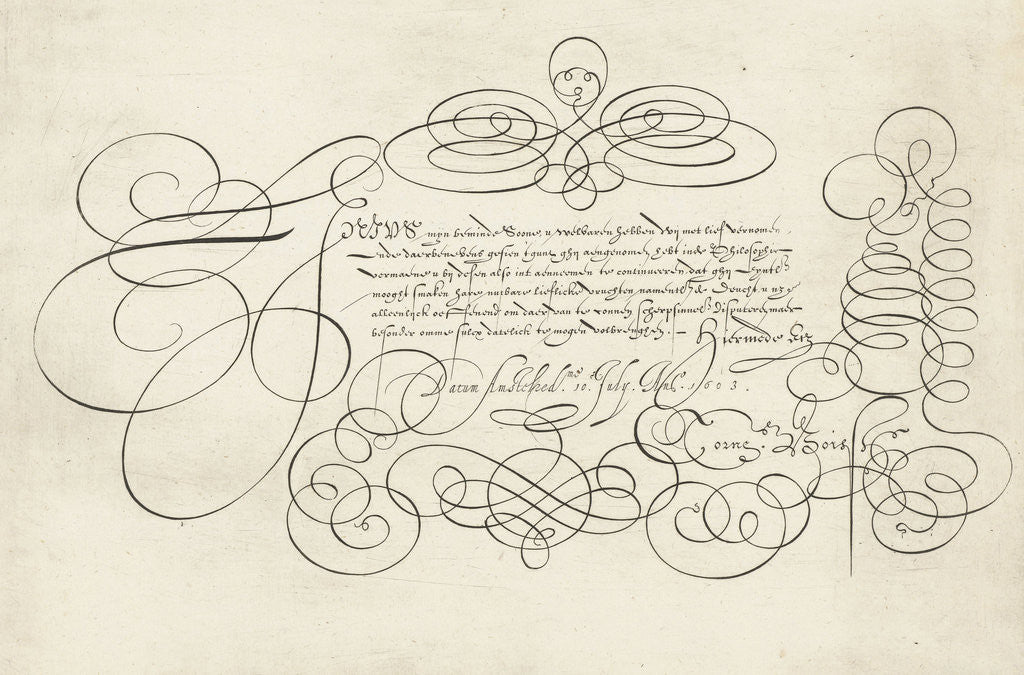 JESUS mijn beminde Soone, u welvaren hebben wij met lief vernomen,
ende daerbenevens gesien 't gune ghij aengenomen hebt inde Philosophie
vermaene u bij desen also int aenneemen te continueren, dat ghij
mooght smaken hare nutbare lieflicke vruchten namentl: de Deucht u
alleenlijck oeffenend om daer van te connen scherpsinnel: disputeren, maer
besonder omme sulcx datelick te mogen volbrenghen. —
Hiermede etz
Datum Amstelred.me 10. July. Anno. 1603.
Corne. Bois